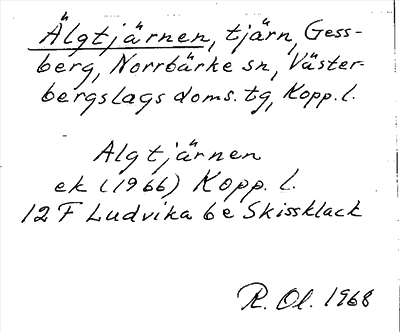 Älgtjärnen, tjärn, Gess-
berg, Norrbärke sn, Väster-
bergslags doms. tg, Kopp. l.
Älgtjärnen
ek (1966) Kopp. l.
12 F Ludvika 6e Skissklack
R. Ol. 1968